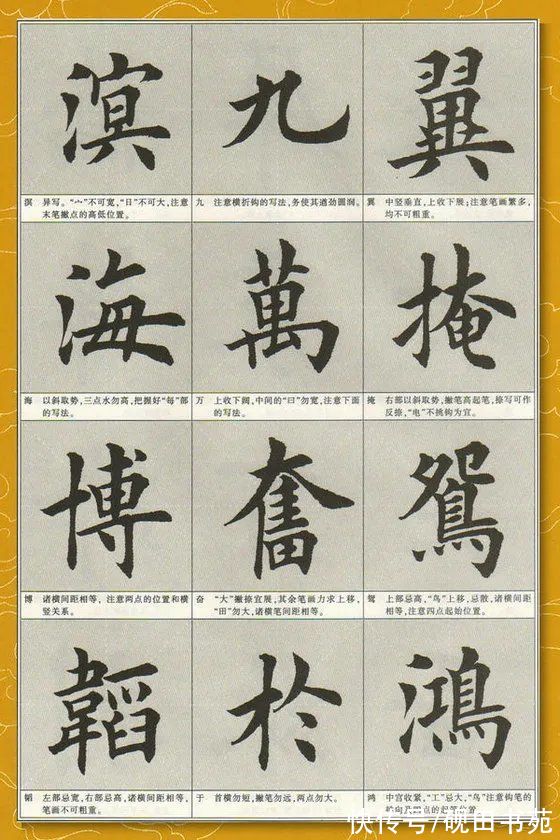 溟
九
翼
溟 异写。“宀”不可宽，“日”不可大，注意
末笔撇点的高低位置。
九 注意横折钩的写法，务使其遒劲圆润。
翼 中竖垂直，上收下展；注意笔画繁多，
均不可粗重。
海
萬
掩
海 以斜取势，三点水勿高，把握好“每”部
的写法。
万 上收下阔，中间的“曰”勿宽，注意下面
的写法。
掩 右部以斜取势，撇笔高起笔，捺写可作
反捺，“电”不挑钩为宜。
博
奮
鴛
博 诸横间距相等，注意两点的位置和横
竖关系。
奋 “大”撇捺宜展，其余笔画力求上移，
“田”勿大，诸横笔间距相等。
鸳 上部忌高，“鸟”上移，忌散，诸横间距
相等，注意四点起始位置。
韜
於
鴻
韬 左部忌宽，右部忌高，诸横间距相等，
笔画不可粗重。
于 首横勿短，撇笔勿远，两点勿大。
鸿 中宫收紧，“工”忌大，“鸟”注意钩笔的
四点的起笔位置
快传号/砚田书苑